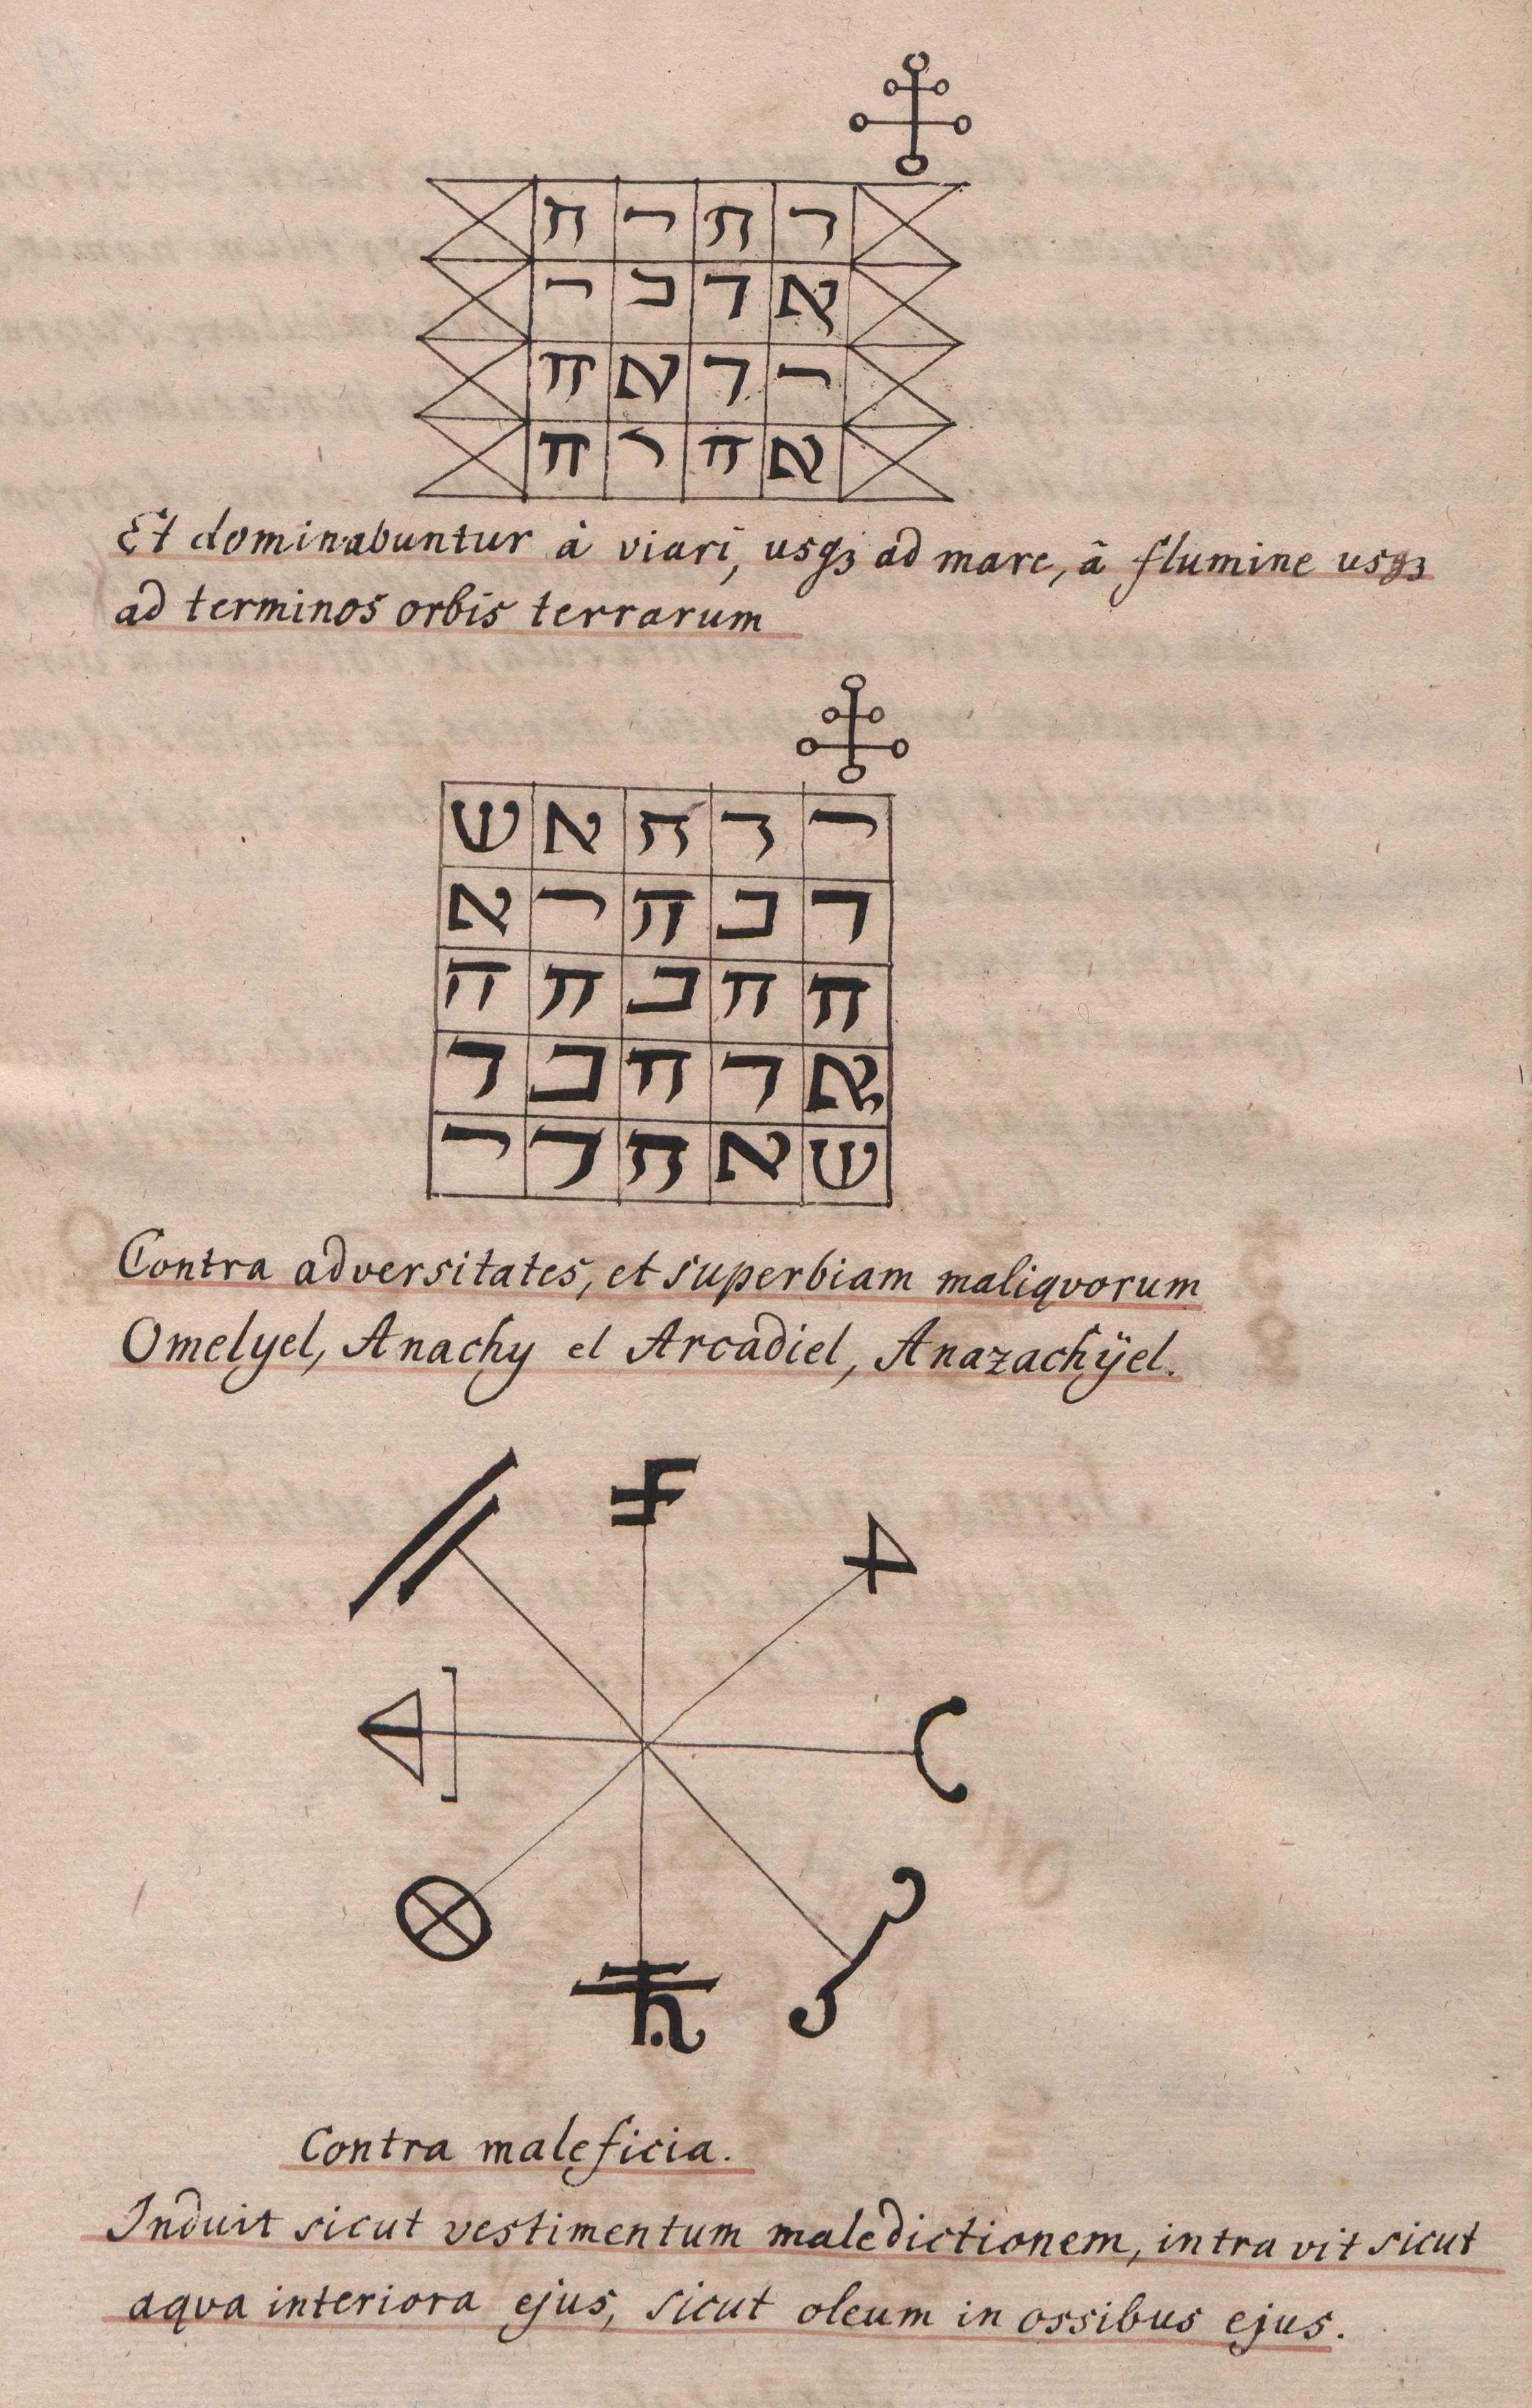 ר ח ר ח
א ד כ ר
ר ד א ח
א ח ר ח
Et dominabuntur à viari, usqз ad mare, ã flumine usqз
ad terminos orbis terrarum
ר ד ח א ש
ד כ ח ר א
ח ח כ ח ח
א ד ח כ ד
ש א ח ד ר
Contra adversitates, et superbiam maliqvorum
Omelyel, Anachy el Arcadiel, Anazachÿel.
Contra maleficia.
Induit sicut vestimentum maledictionem, intra vit sicut
aqva interiora ejus, sicut oleum in ossibus ejus.